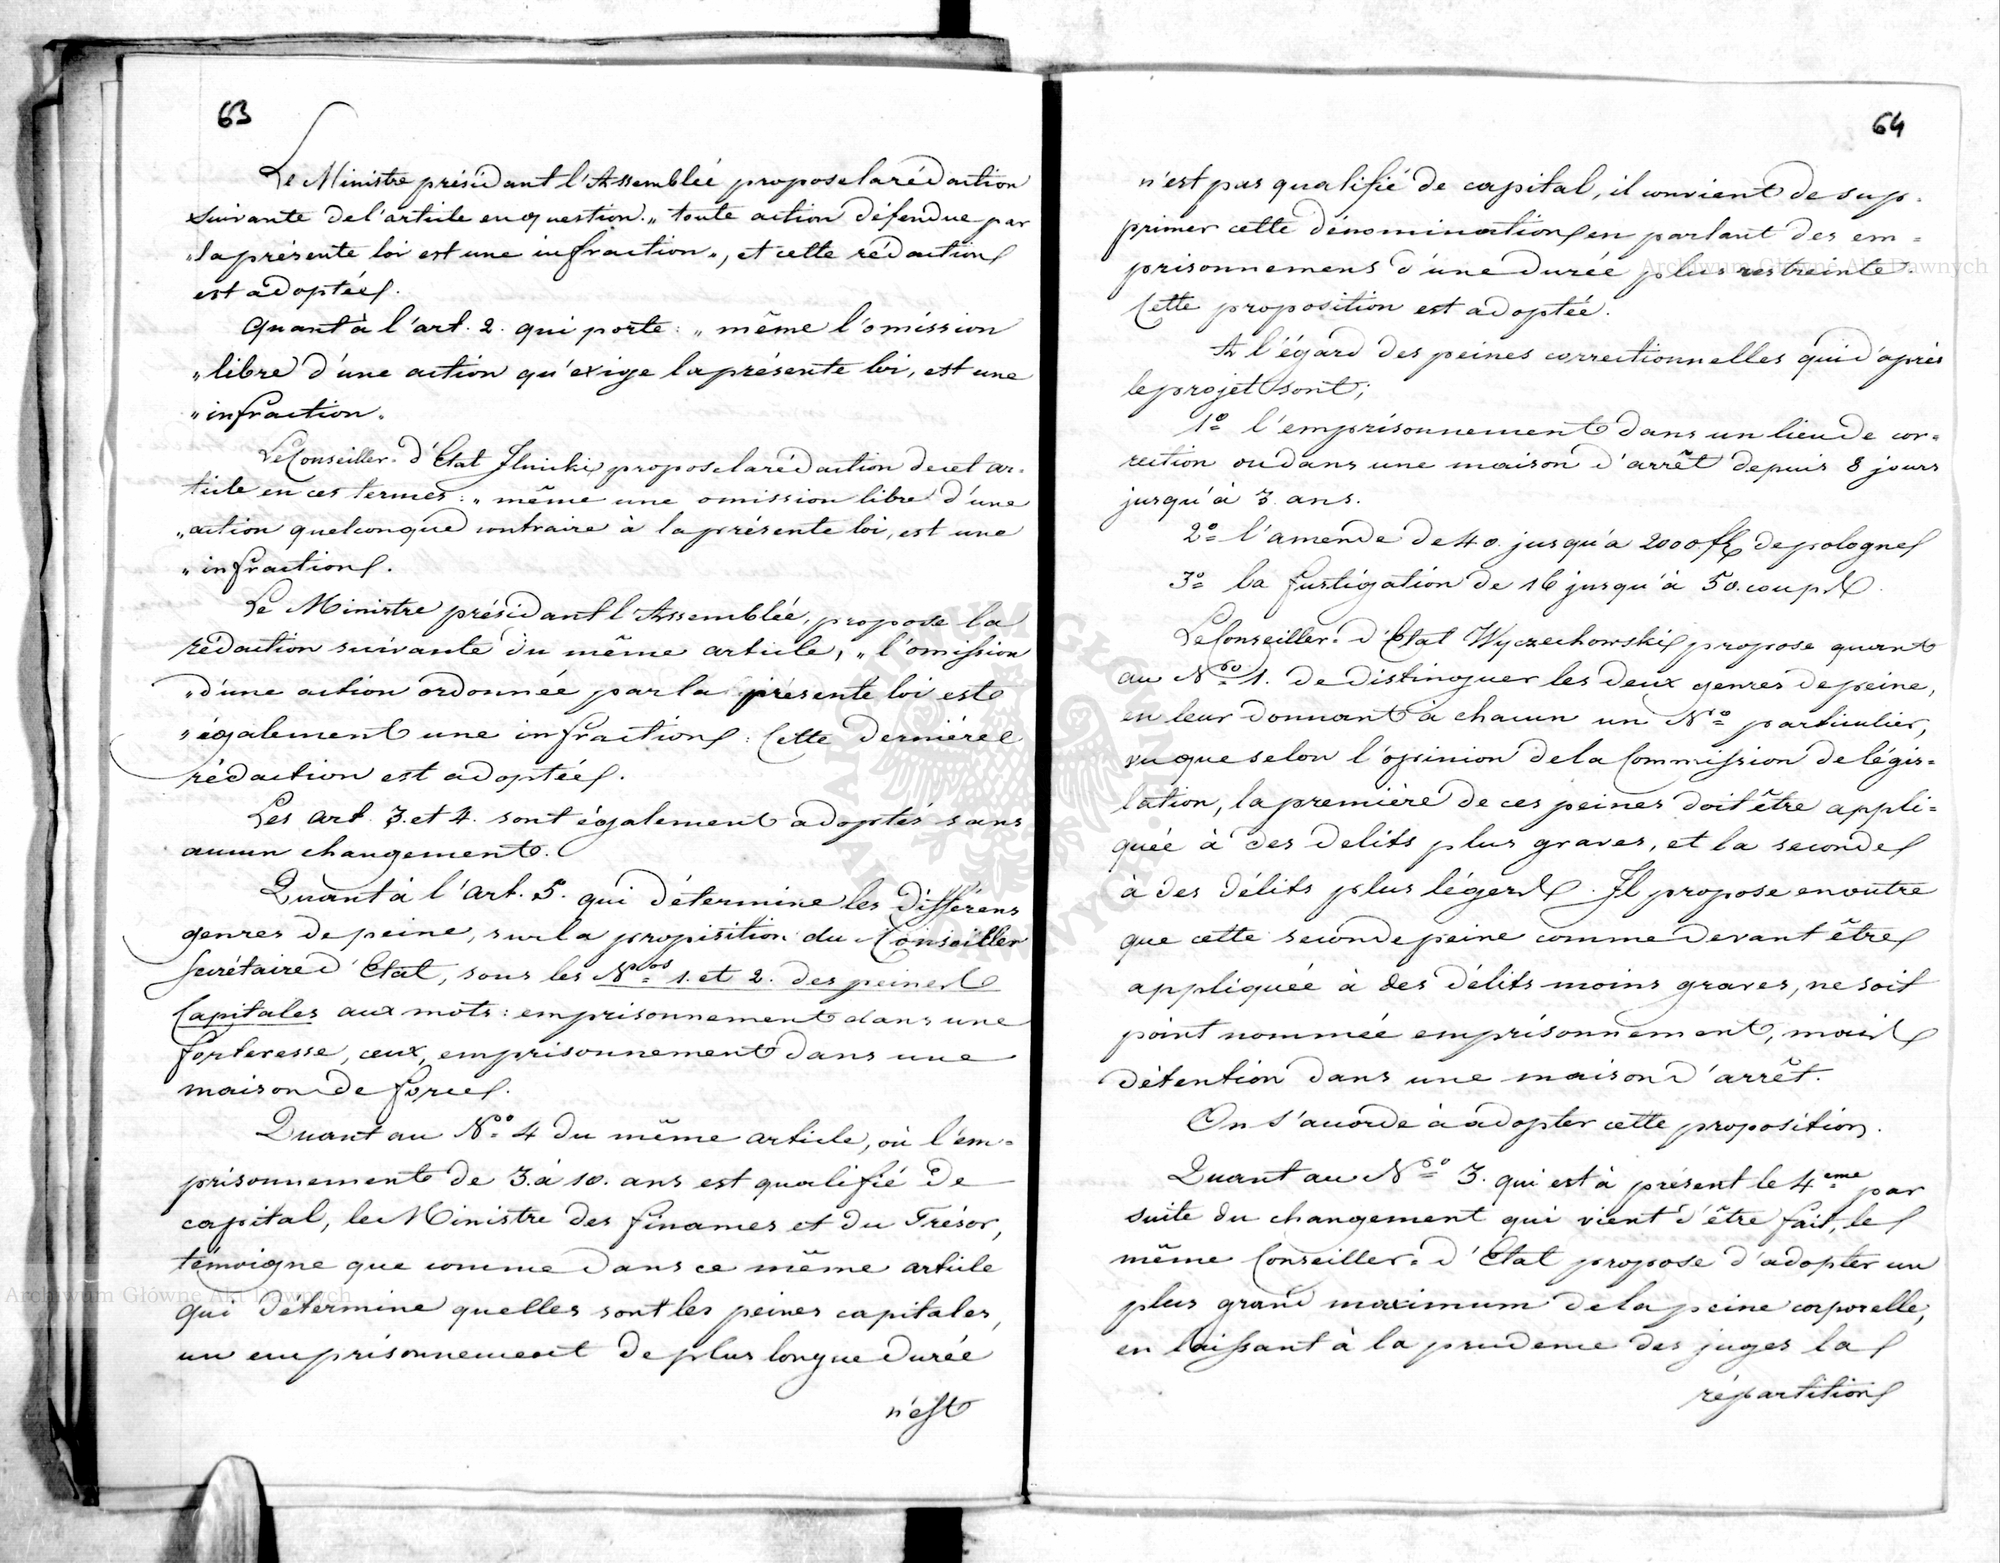 63
Le Ministre présidant l'Assemblée propose la rédaction
suivante de l'article en question. „ toute action défendue par
„ la présente loi est une infraction „, et cette rédaction
est adoptée.
Quant à l'art. 2. qui porte: „ même l'omission
„ libre d'une action qu'exige la présente loi, est une
„ infraction „
Le Conseiller d'Etat Ilnicki propose la rédaction de cet ar-
ticle en ces termes: „ même une omission libre d'une
„ action quelconque contraire à la présente loi, est une
„ infraction.
Le Ministre présidant l'Assemblée, propose la
rédaction suivante du même article, „ l'omission
„ d'une action ordonnée par la présente loi est
„ également une infraction: Cette dernière
rédaction est adoptée.
Les art. 3. et 4. sont également adoptés sans
aucun changement.
Quant à l'art. 5. qui détermine les différens
genres de peine, sur la proposition du Conseiller
Secrétaire d'Etat, sous les Nos 1. et 2. des peines
Capitales aux mots: emprisonnement dans une
forteresse, ceux, emprisonnement dans une
maison de force.
Quant au No 4 du même article, où l'em-
prisonnement de 3. à 10. ans est qualifié de
capital, le Ministre des finances et du Trésor,
témoigne que comme dans ce même article
qui détermine quelles sont les peines capitales,
un emprisonnement de plus longue durée
n'est
64
n'est pas qualifié de capital, il convient de sup-
primer cette dénomination en parlant des em-
prisonnemens d'une durée plus restreinte.
Cette proposition est adoptée.
A l'égard des peines correctionnelles qui d'après
le projet sont;
1o l'emprisonnement dans un lieu de cor-
rection ou dans une maison d'arrêt depuis 8 jours
jusqu'à 3. ans.
2o l'amende de 40. jusqu'à 2000 fl. de pologne
3o la fustigation de 16 jusqu'à 50. coups.
Le Conseiller d'Etat Wyczechowski propose quant
au No 1. de distinguer les deux genres de peine,
en leur donnant à chacun un No particulier,
vu que selon l'opinion de la Commission de légis-
lation, la première de ces peines doit être appli-
quée à des delits plus graves, et la seconde
à des délits plus légers. Il propose en outre
que cette seconde peine comme devant être
appliquée à des délits moins graves, ne soit
point nommée emprisonnement, mais
détention dans une maison d'arrêt.
On s'acorde à adopter cette proposition.
Quant au No 3. qui est à présent le 4eme par
suite du changement qui vient d'être fait, le
même Conseiller d'Etat propose d'adopter un
plus grand maximum de la peine corporelle,
en laissant à la prudence des juges la
répartition
ARCHIWUM GŁÓWNE AKT DAWNYCH
Archiwum Główne Akt Dawnych
Archiwum Główne Akt Dawnych